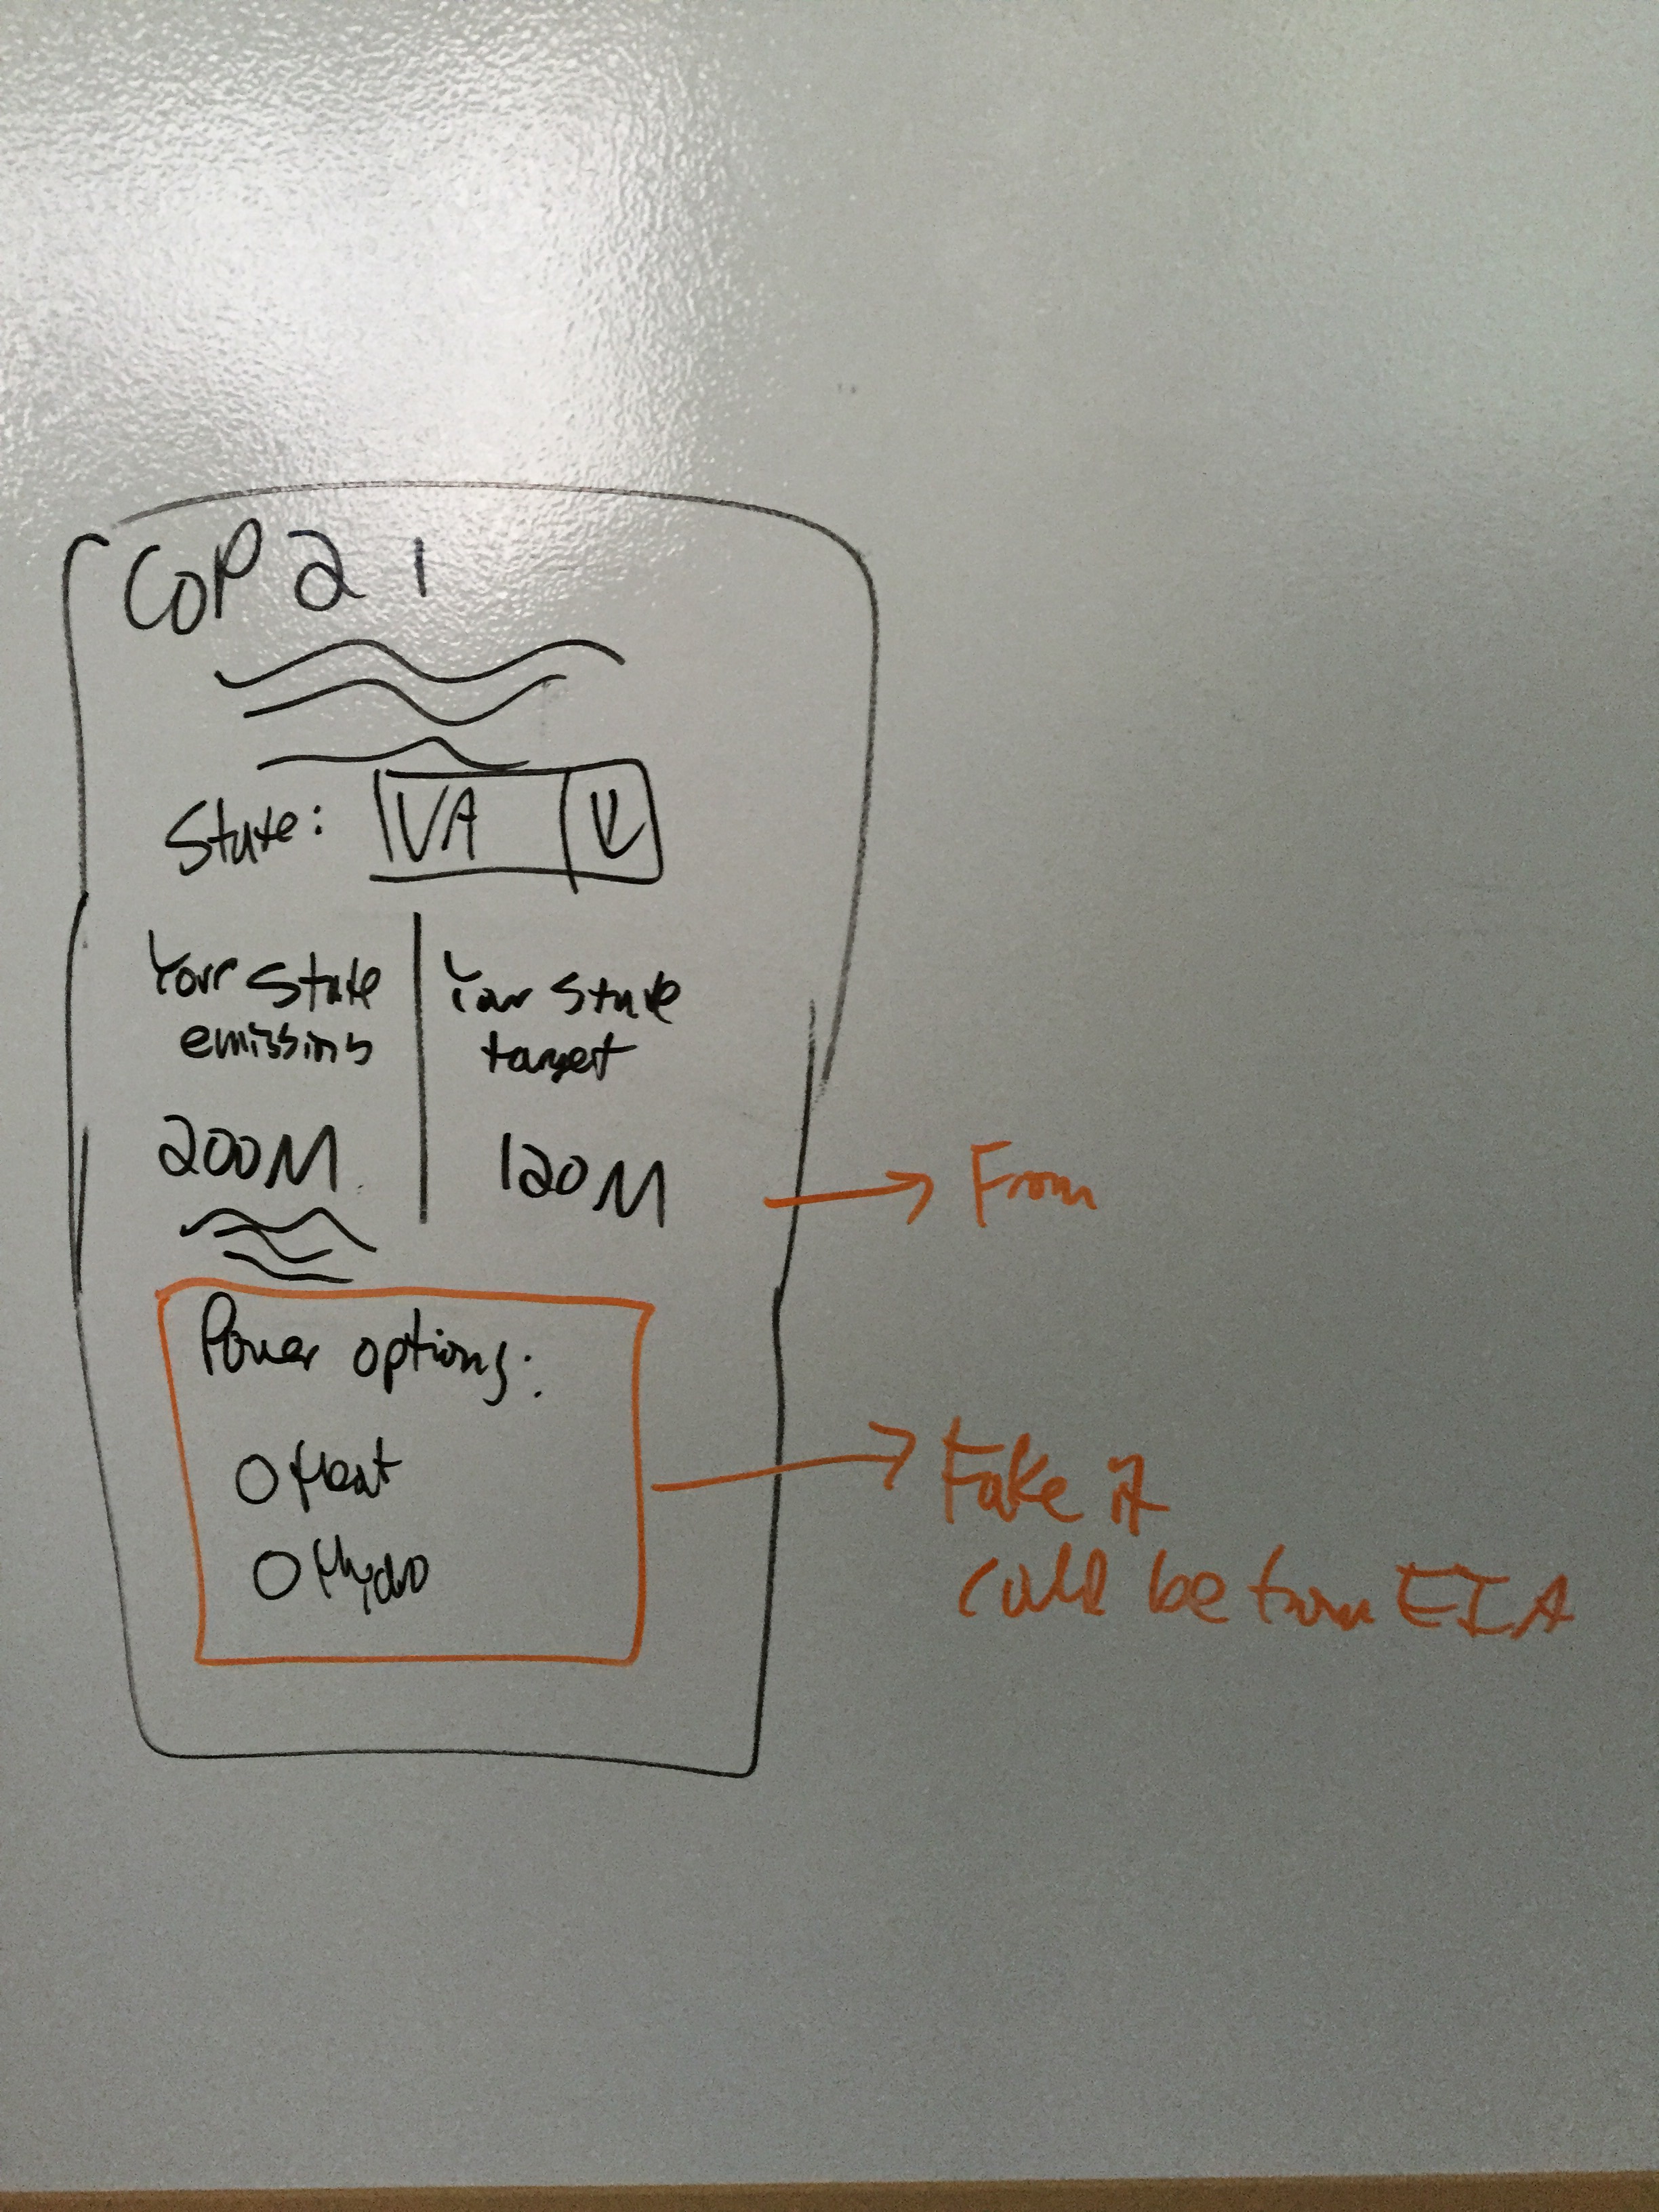 COP 21
State: VA
Your State emissions
Your State target
200M
120M
From
Power options:
Heat
Hydro
Fake it
could be from EIA